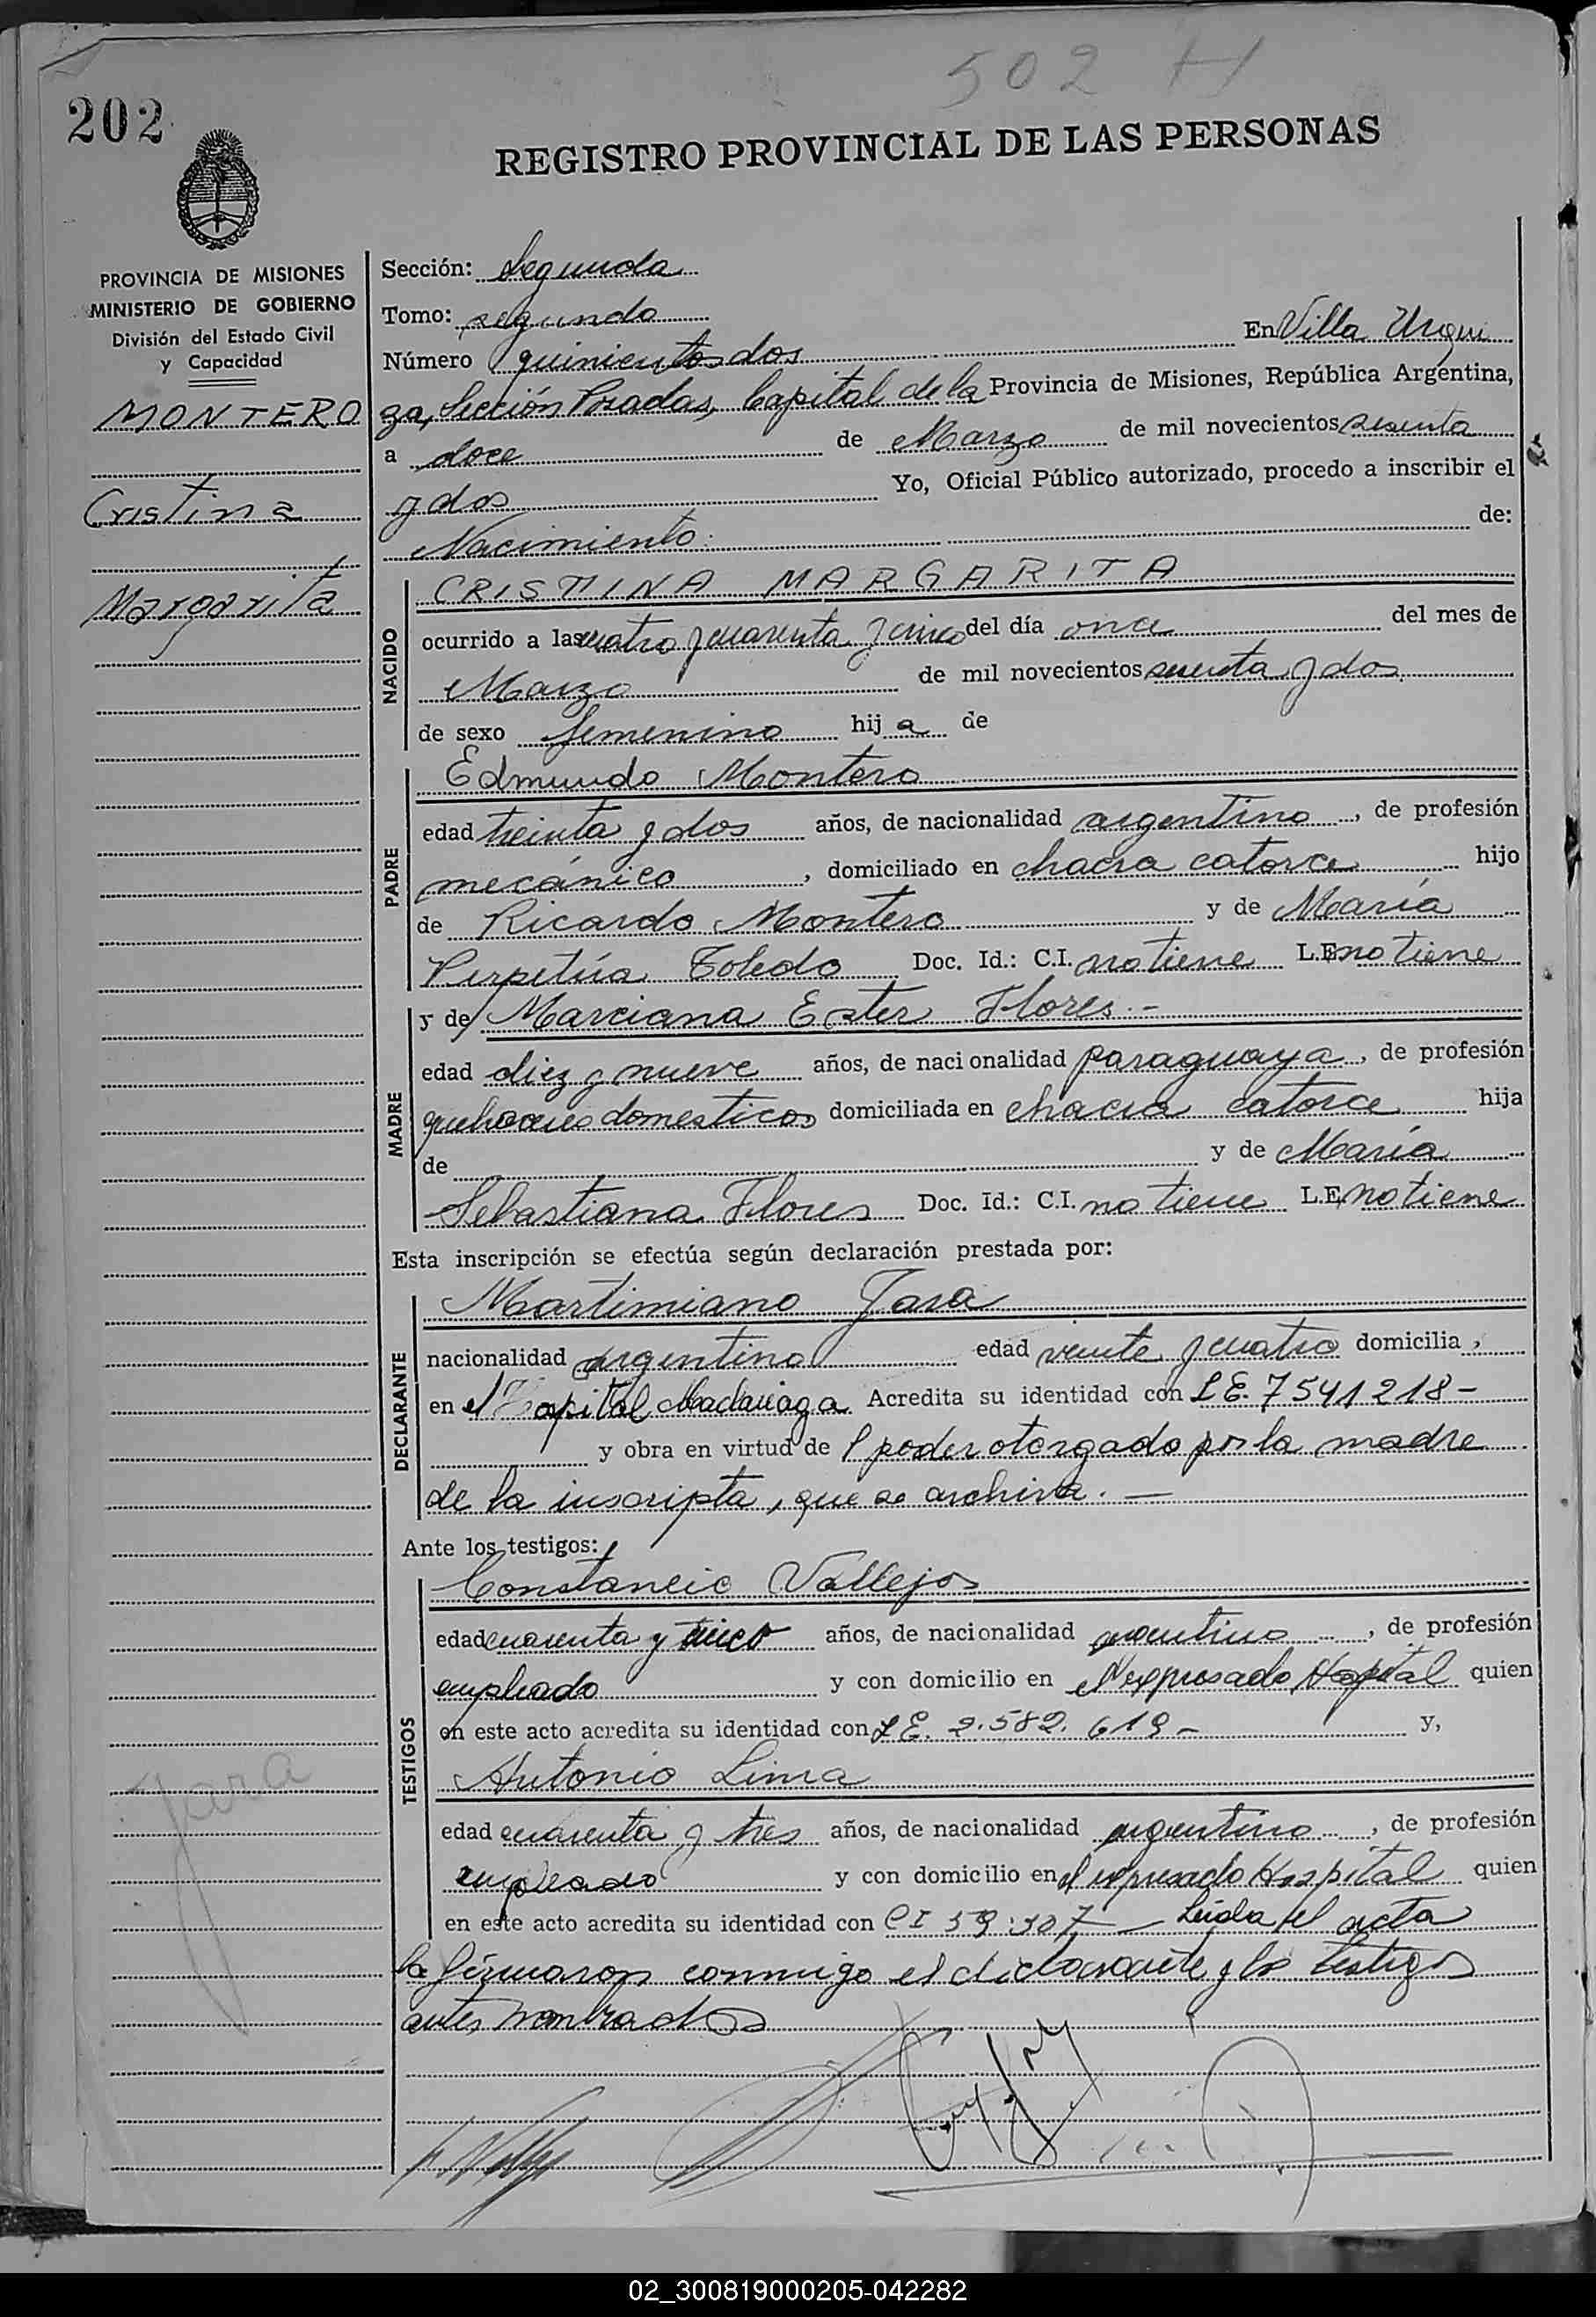 502 H
202
REGISTRO PROVINCIAL DE LAS PERSONAS
PROVINCIA DE MISIONES
MINISTERIO DE GOBIERNO
División del Estado Civil
y Capacidad
MONTERO
Cristina
Margarita
Jara
Sección: Segunda
Tomo: segundo
Número quinientos dos En Villa Urqui
za, Sección Posadas, Capital de la Provincia de Misiones, República Argentina,
a doce de Marzo de mil novecientos sesenta
y dos Yo, Oficial Público autorizado, procedo a inscribir el
Nacimiento de:
NACIDO
CRISTINA MARGARITA
ocurrido a las cuatro y cuarenta y cinco del día once del mes de
Marzo de mil novecientos sesenta y dos
de sexo femenino hij a de
PADRE
Edmundo Montero
edad treinta y dos años, de nacionalidad argentino, de profesión
mecánico, domiciliado en chacra catorce hijo
de Ricardo Montero y de María
Perpetúa Toledo Doc. Id.: C.I. no tiene L.E. no tiene
MADRE
y de Marciana Ester Flores.-
edad diez y nueve años, de nacionalidad paraguaya, de profesión
quehaceres domesticos domiciliada en chacra catorce hija
de y de María
Sebastiana Flores Doc. Id.: C.I. no tiene L.E. no tiene
Esta inscripción se efectúa según declaración prestada por:
DECLARANTE
Martimiano Jara
nacionalidad argentino edad veinte y cuatro domicilia,
en el Hospital Madariaga Acredita su identidad con L E. 7541218-
y obra en virtud de l poder otorgado por la madre
de la inscripta, que se archiva.-
Ante los testigos:
TESTIGOS
Constancio Vallejos
edad cuarenta y cinco años, de nacionalidad argentino, de profesión
empleado y con domicilio en el expresado Hospital quien
en este acto acredita su identidad con L E. 2.582.619- y,
Antonio Lima
edad cuarenta y tres años, de nacionalidad argentino, de profesión
empleado y con domicilio en el expresado Hospital quien
en este acto acredita su identidad con C I 59.307- Leída el acta
la firmaron conmigo el declarante y los testigos
antes nombrados
02_300819000205-042282